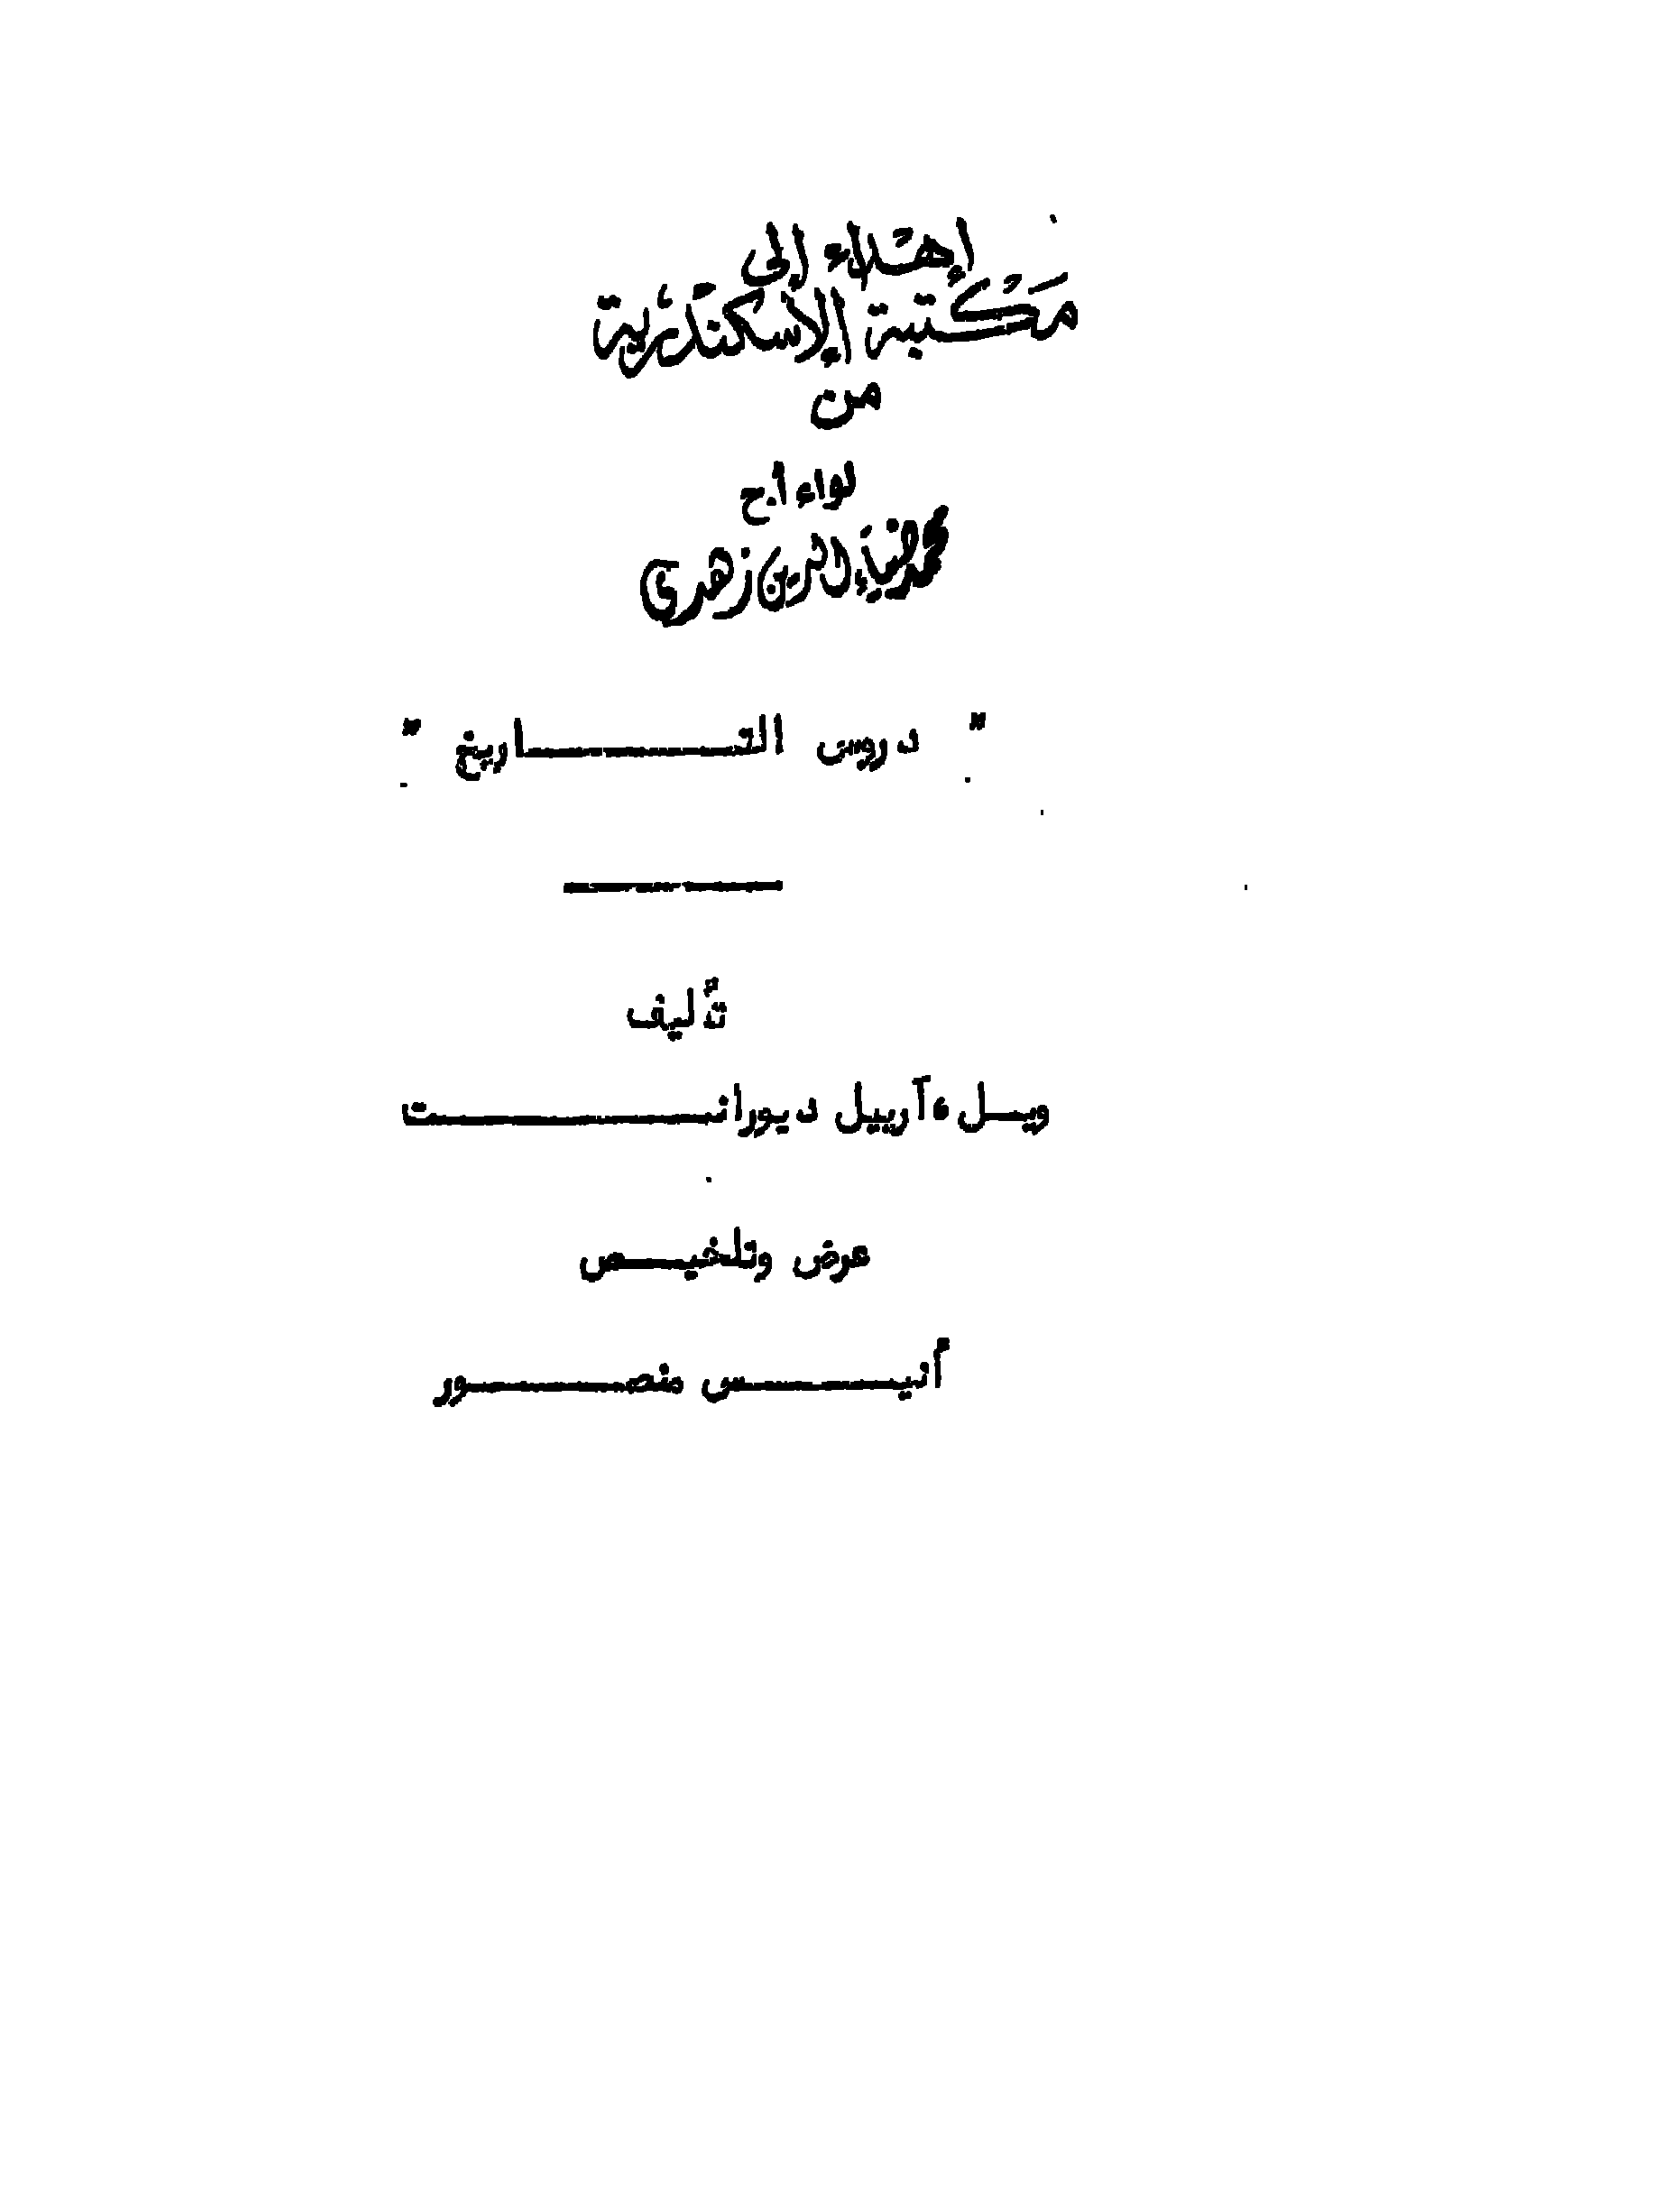 إهداء إلى
مكتبة الإسكندرية
من
لواء أ.ح
محمد ضياء الدين زهدي
" دروس التاريخ "
تأليف
ويل ، آرييل ديورانت
عرض وتلخيص
أنيس منصور